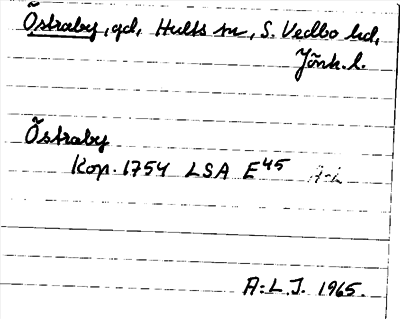 Östraby, gd, Hults sn, S. Vedbo hd,
Jönk. l.
Östraby
Kop. 1754 LSA E45
A:L.J. 1965.